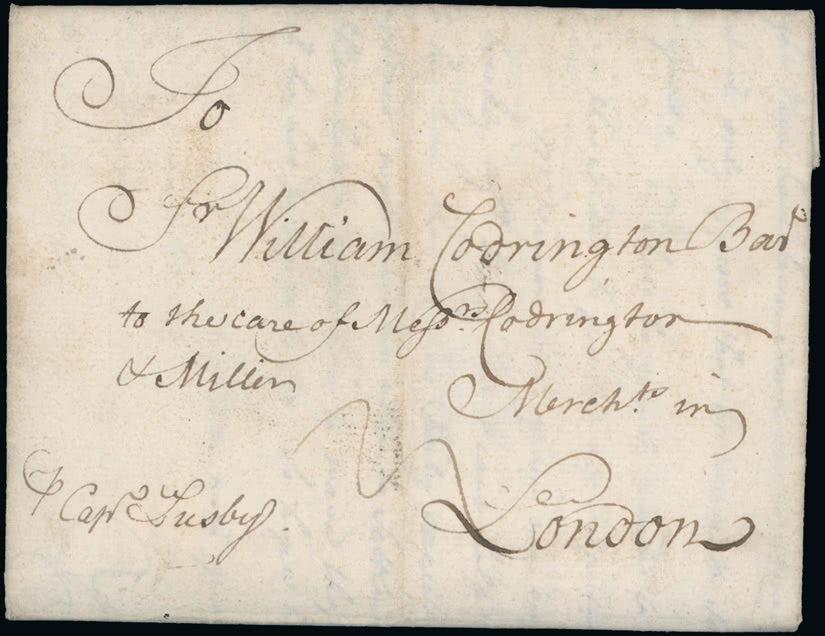 To
Sr William Codrington Bart
to the care of Messrs Codrington
& Miller
Merchts in
London
℘ Capt Lusby